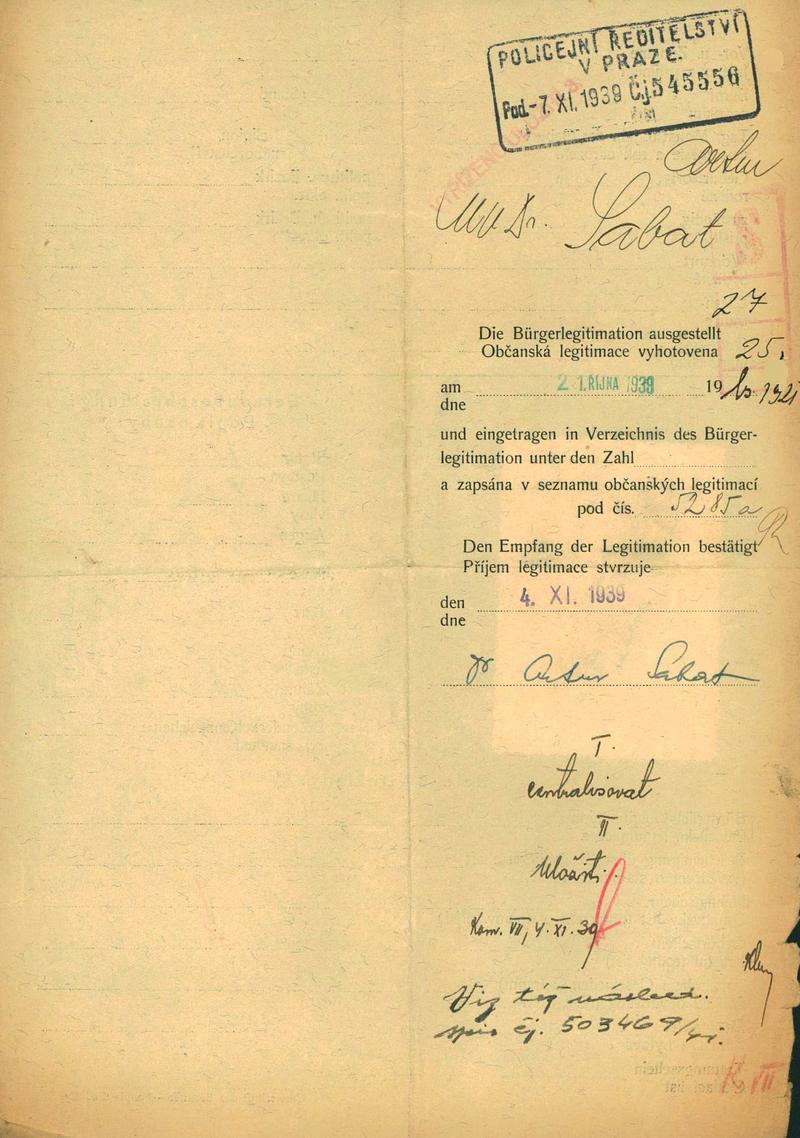 POLICEJNÍ ŘEDITELSTVÍ
V PRAZE.
Pod.-7. XI. 1939 Čj. 545556
MUDr. Sabat
27
Die Bürgerlegitimation ausgestellt
Občanská legitimace vyhotovena 25.
am 21. ŘÍJNA 1939 19
dne
und eingetragen in Verzeichnis des Bürger-
legitimation unter den Zahl
a zapsána v seznamu občanských legitimací
pod čís. 5285a
Den Empfang der Legitimation bestätigt
Příjem legitimace stvrzuje
den 4. XI. 1939
dne
Dr Artur Sabat
I.
centralisovat
II.
Uložiti.
Kom. VII, 4. XI. 39
Viz též násled.
spis čj. 503469/
K VII